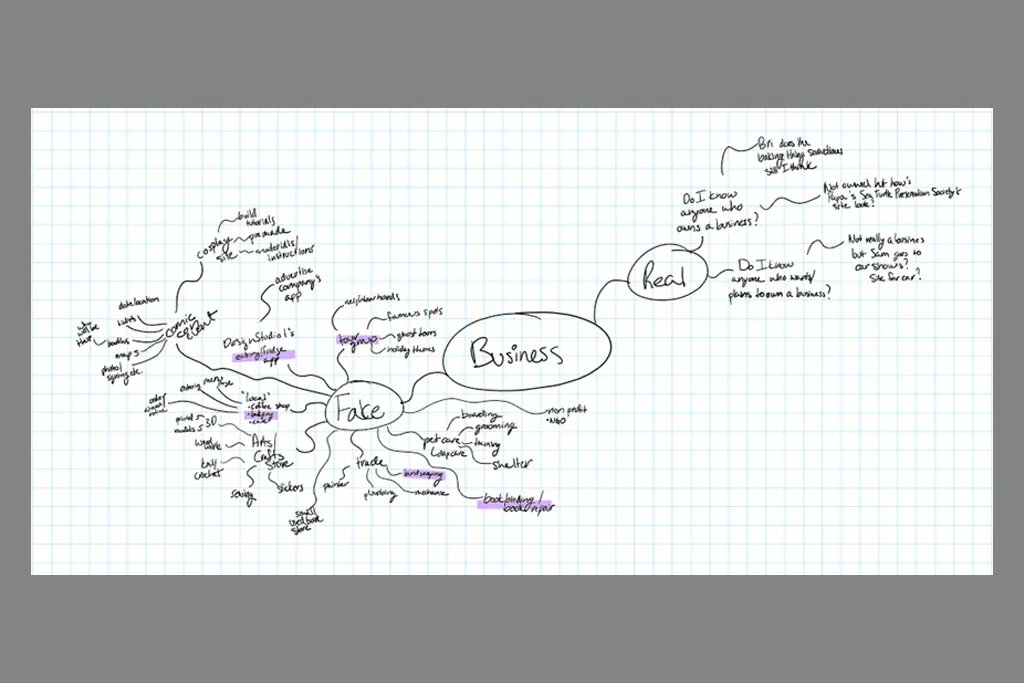 Business
Real
Do I know
anyone who
owns a business?
Bri does the
baking thing sometimes
still I think
Not owned but how's
Papa's Sea Turtle Preservation Society's
site look?
Do I know
anyone who wants/
plans to own a business?
Not really a business
but Sam goes to
car shows?
Site for car?
Fake
cosplay
site
build
tutorials
premade
materials/
instructions
comic
event
date location
who
will be
there
booths
maps
photo/
signing etc.
advertise
company's
app
Design Studio 1's
eating/fridge
app
tour group
neighbourhoods
famous spots
ghost tours
holiday themes
"local"
• coffee shop
• bakery
menu
order
online
Arts/
Crafts
Store
3D
models
knit/
crochet
sewing
stickers
small
used book
store
trade
painter
plumbing
mechanic
landscaping
pet care
boarding
grooming
training
daycare
shelter
book binding/
book repair
• non profit
• NGO